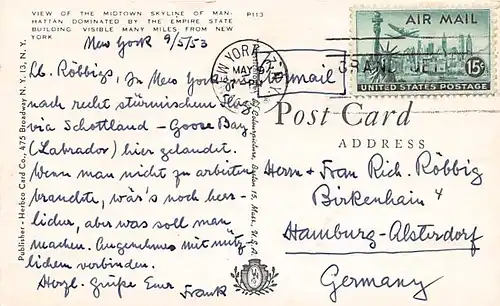 VIEW OF THE MIDTOWN SKYLINE OF MAN-
HATTAN DOMINATED BY THE EMPIRE STATE
BUILDING VISIBLE MANY MILES FROM NEW
YORK
P113
New York 9/5/53
Lb. Röbbigs, In New York
nach recht stürmischem Flug
via Schottland – Goose Bay
(Labrador) hier gelandet.
Wenn man nicht zu arbeiten
brauchte, wär's noch herr-
licher, aber was soll man
machen. Angenehmes mit nütz-
lichem verbinden.
Herzl. Grüße Euer Frank
Publisher - Herbco Card Co., 475 Broadway N.Y. 13, N.Y.
NEW YORK, N.Y.
MAY 9
PM
Airmail
AIR MAIL
15¢
UNITED STATES POSTAGE
Post Card
ADDRESS
Herrn + Frau Rich. Röbbig
Birkenhain 4
Hamburg-Alsterdorf
Germany